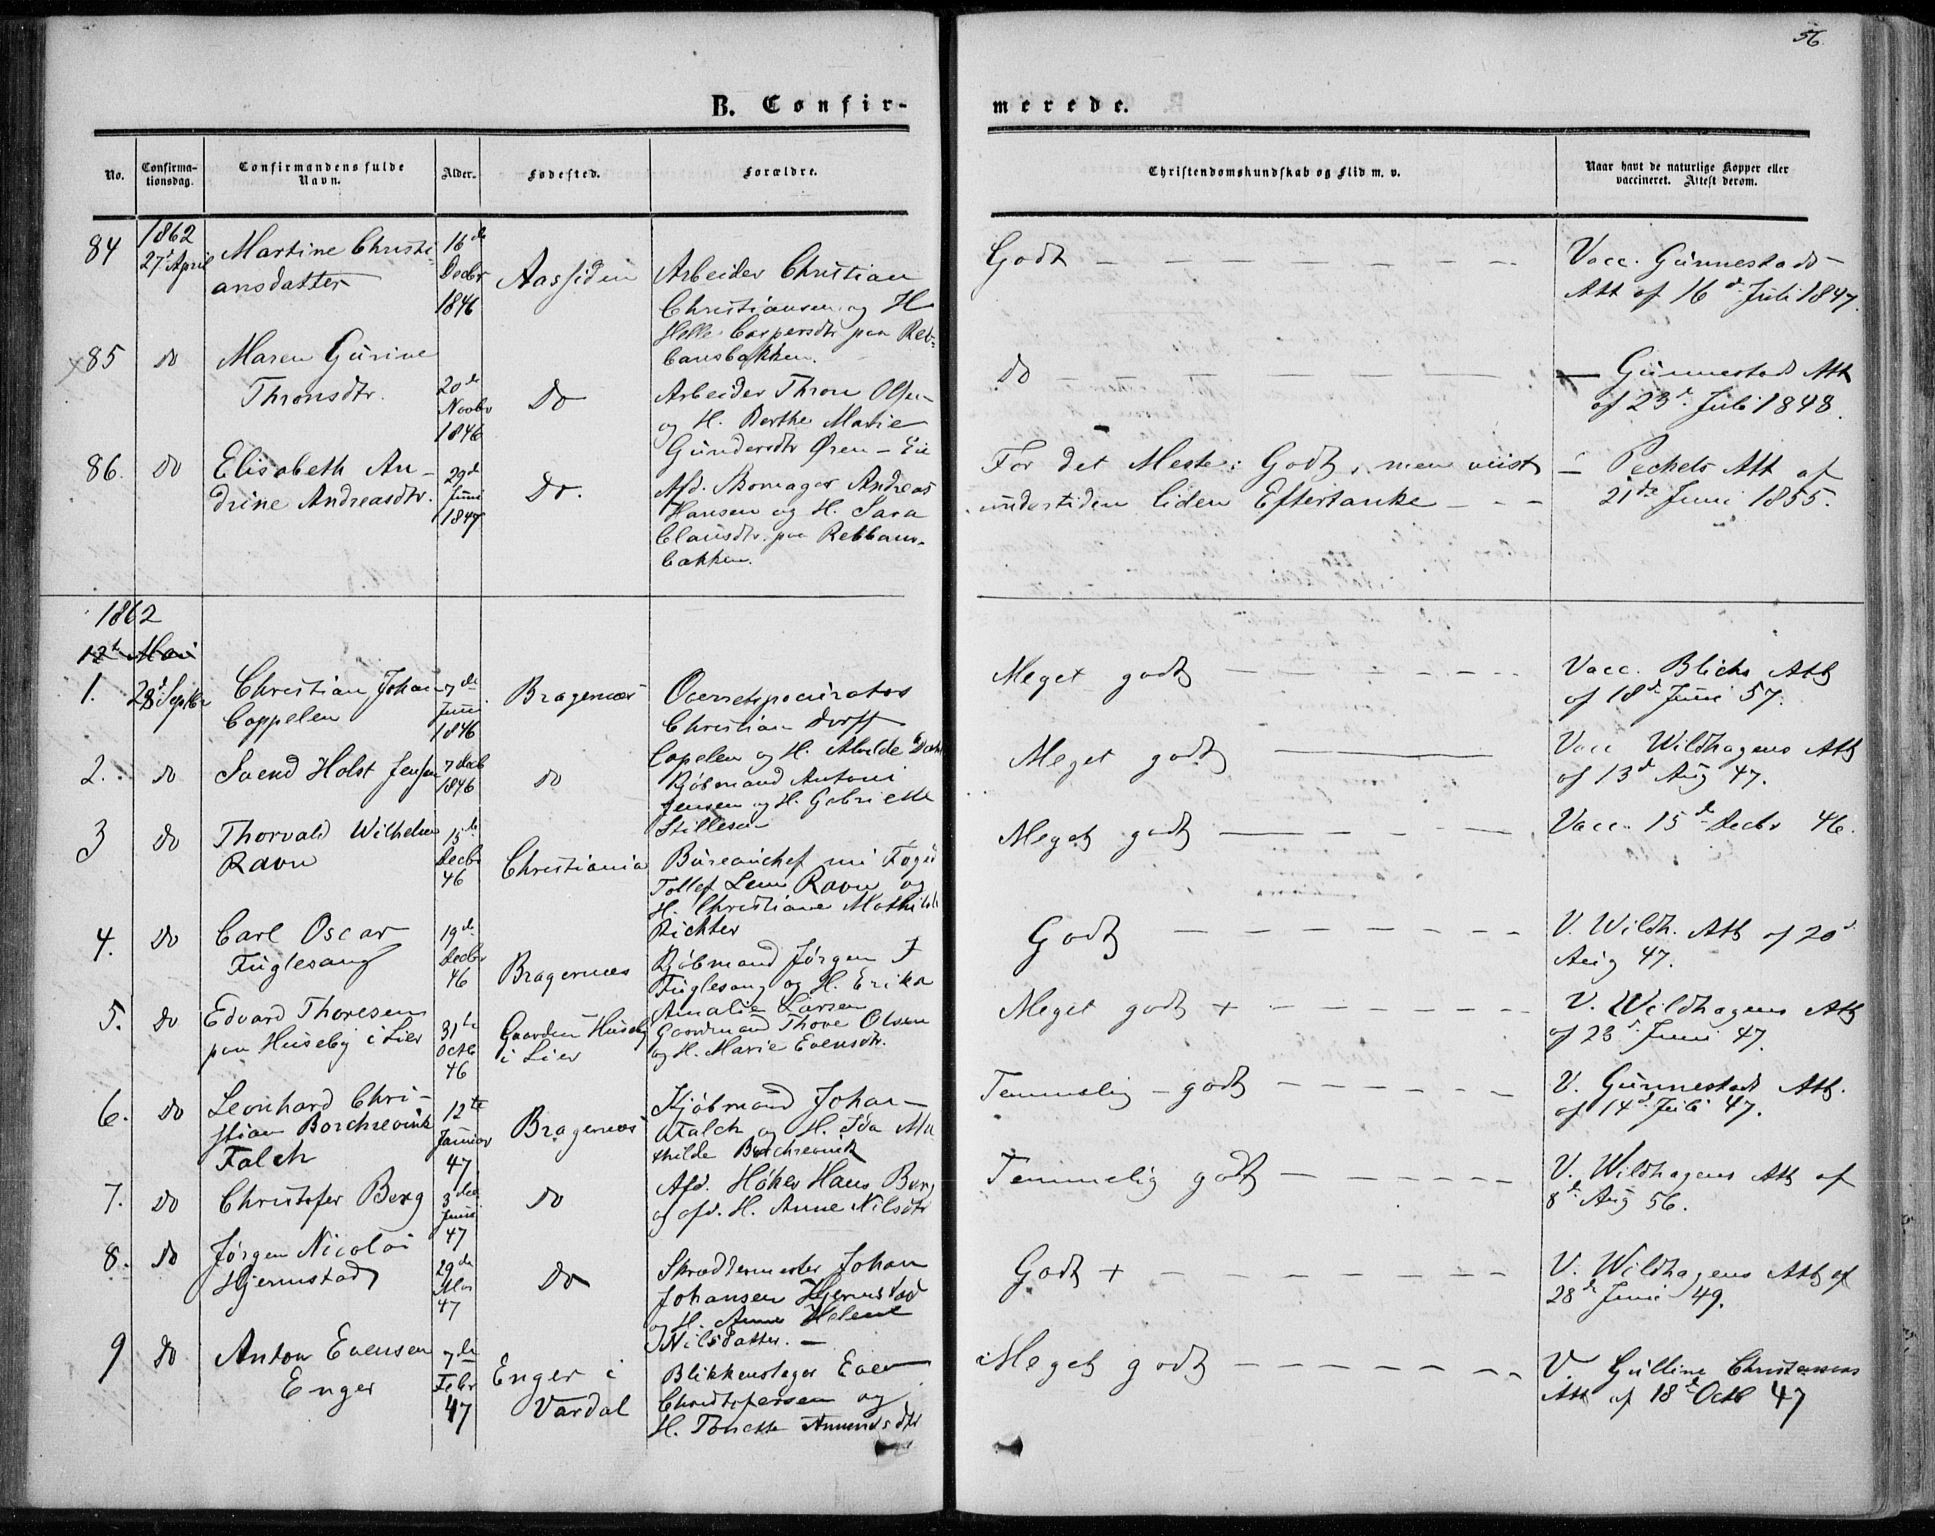 56
B. Confir-
merede.
No.
Confirma-
tionsdag.
Confirmandens fulde
Navn.
Alder.
Fødested.
Forældre.
Christendomskundskab og Flid m. v.
Naar havt de naturlige Kopper eller
vaccineret. Attest derom.
84
1862
27d April
Martine Christi
ansdatter
16de
Decbr
1846
Aassiden
Arbeider Christian
Christiansen og H
Helle Caspersdtr paa Reb-
bansbakken.
Godt
Vacc. Gunnestads
Att af 16d Juli 1847.
85
do
Maren Gurine
Thronsdtr.
20de
Novbr
1846
Do
Arbeider Thron Olsen
og H. Berthe Marie
Gundersdtr Øren - Eie
do
Gunnestads Att
af 23d Juli 1848.
86.
do
Elisabeth An-
drine Andreasdtr.
29d
Juni
1847
Do.
Afd. Skomager Andreas
Hansen og H. Sara
Clausdtr. paa Rebbans-
bakken.
For det Meste Godt, men viist
undertiden liden Eftertanke
Pechels Att af
21de Juni 1855.
1862
12te Mai
1.
28d Septbr
Christian Johan
Coppelen
7de
Juni
1846
Bragernæs
Overretsprocurator
Christian Dorff
Copelen og H. Alvilde
Meget godt
Vacc. Blichs Att
af 18de Juni 57.
2.
do
Svend Holst Jensen
7 Decb
1846
do
Kjøbmand Antoni
Jensen og H. Gabrielle
Stillesen
Meget godt
Vacc Wildhagens Att
af 13d Aug 47.
3
do
Thorvald Wilhelm
Ravn
15de
Decbr
46
Christiania
Bureauchef nu Foged
Tollef Lem Ravn og
H. Christiane Mathilde
Richter
Meget godt
Vacc. 15de Decbr 46.
4.
Do
Carl Oscar
Fuglesang
19de
Decbr
46
Bragernæs
Kjøbmand Jørgen F
Fuglesang og H. Erika
Amalie Larsen
Godt
V. Wildh. Att af 20d
Aug 47.
5.
Do
Edvard Thoresen
paa Huseby i Lier
31te
Octb
46
Gaarden Huseby
i Lier
Gaardmand Thore Olsen
og H. Marie Evensdtr.
Meget godt +
V. Wildhagens Att
af 23d Juni 47.
6.
Do
Leonhard Chri-
stian Borchrevink
Falch
12te
Januar
47
Bragernæs
Kjøbmand Johan
Falch og H. Ida Ma
thilde Borchrevink
Temmelig - godt
V. Gunnestads Att.
af 14d Juli 47.
7.
Do
Christofer Berg
3die
Juni
47
Do
Afd. Høker Hans Berg
og afd. H. Anne Nilsdtr
Temmelig godt
V. Wildhagens Att af
8d Aug 56.
8.
Do
Jørgen Nicolai
Hjermstad
29de
Mai
47
Do
Skrædermester Johan
Johansen Hjermstad
og H. Anne Helene
Nilsdatter. -
Godt +
V. Wildhagens Att af
28d Juni 49.
9
Do
Anton Evensen
Enger
7de
Febr
47
Enger i
Vardal
Blikkenslager Even
Christofersen og
H. Tonette Amundsdtr
Meget godt
V. Gulline Christensens
Att af 18d Octb 47